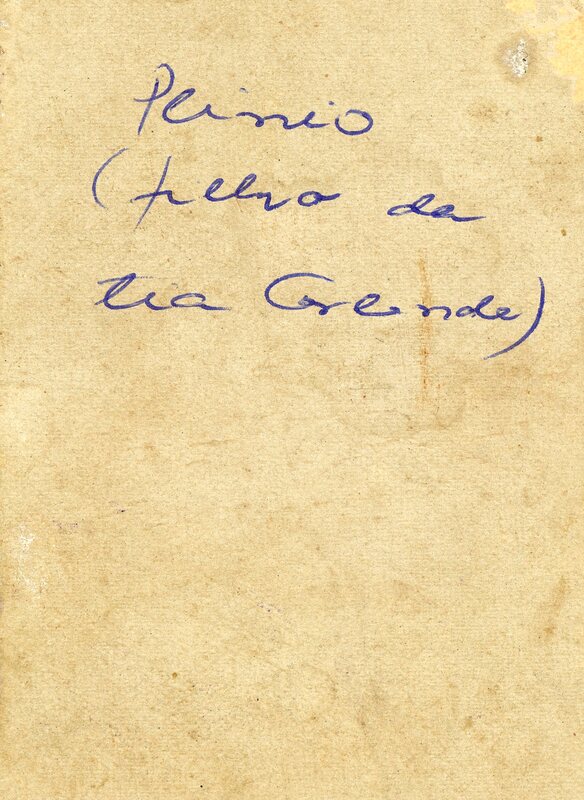 Plinio
(filho da
tia Carlinda)